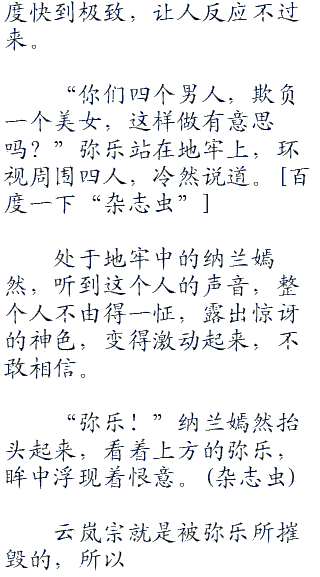 度快到极致，让人反应不过
来。
“你们四个男人，欺负
一个美女，这样做有意思
吗？”弥乐站在地牢上，环
视周围四人，冷然说道。[百
度一下“杂志虫”]
处于地牢中的纳兰嫣
然，听到这个人的声音，整
个人不由得一怔，露出惊讶
的神色，变得激动起来，不
敢相信。
“弥乐！”纳兰嫣然抬
头起来，看着上方的弥乐，
眸中浮现着恨意。(杂志虫)
云岚宗就是被弥乐所摧
毁的，所以